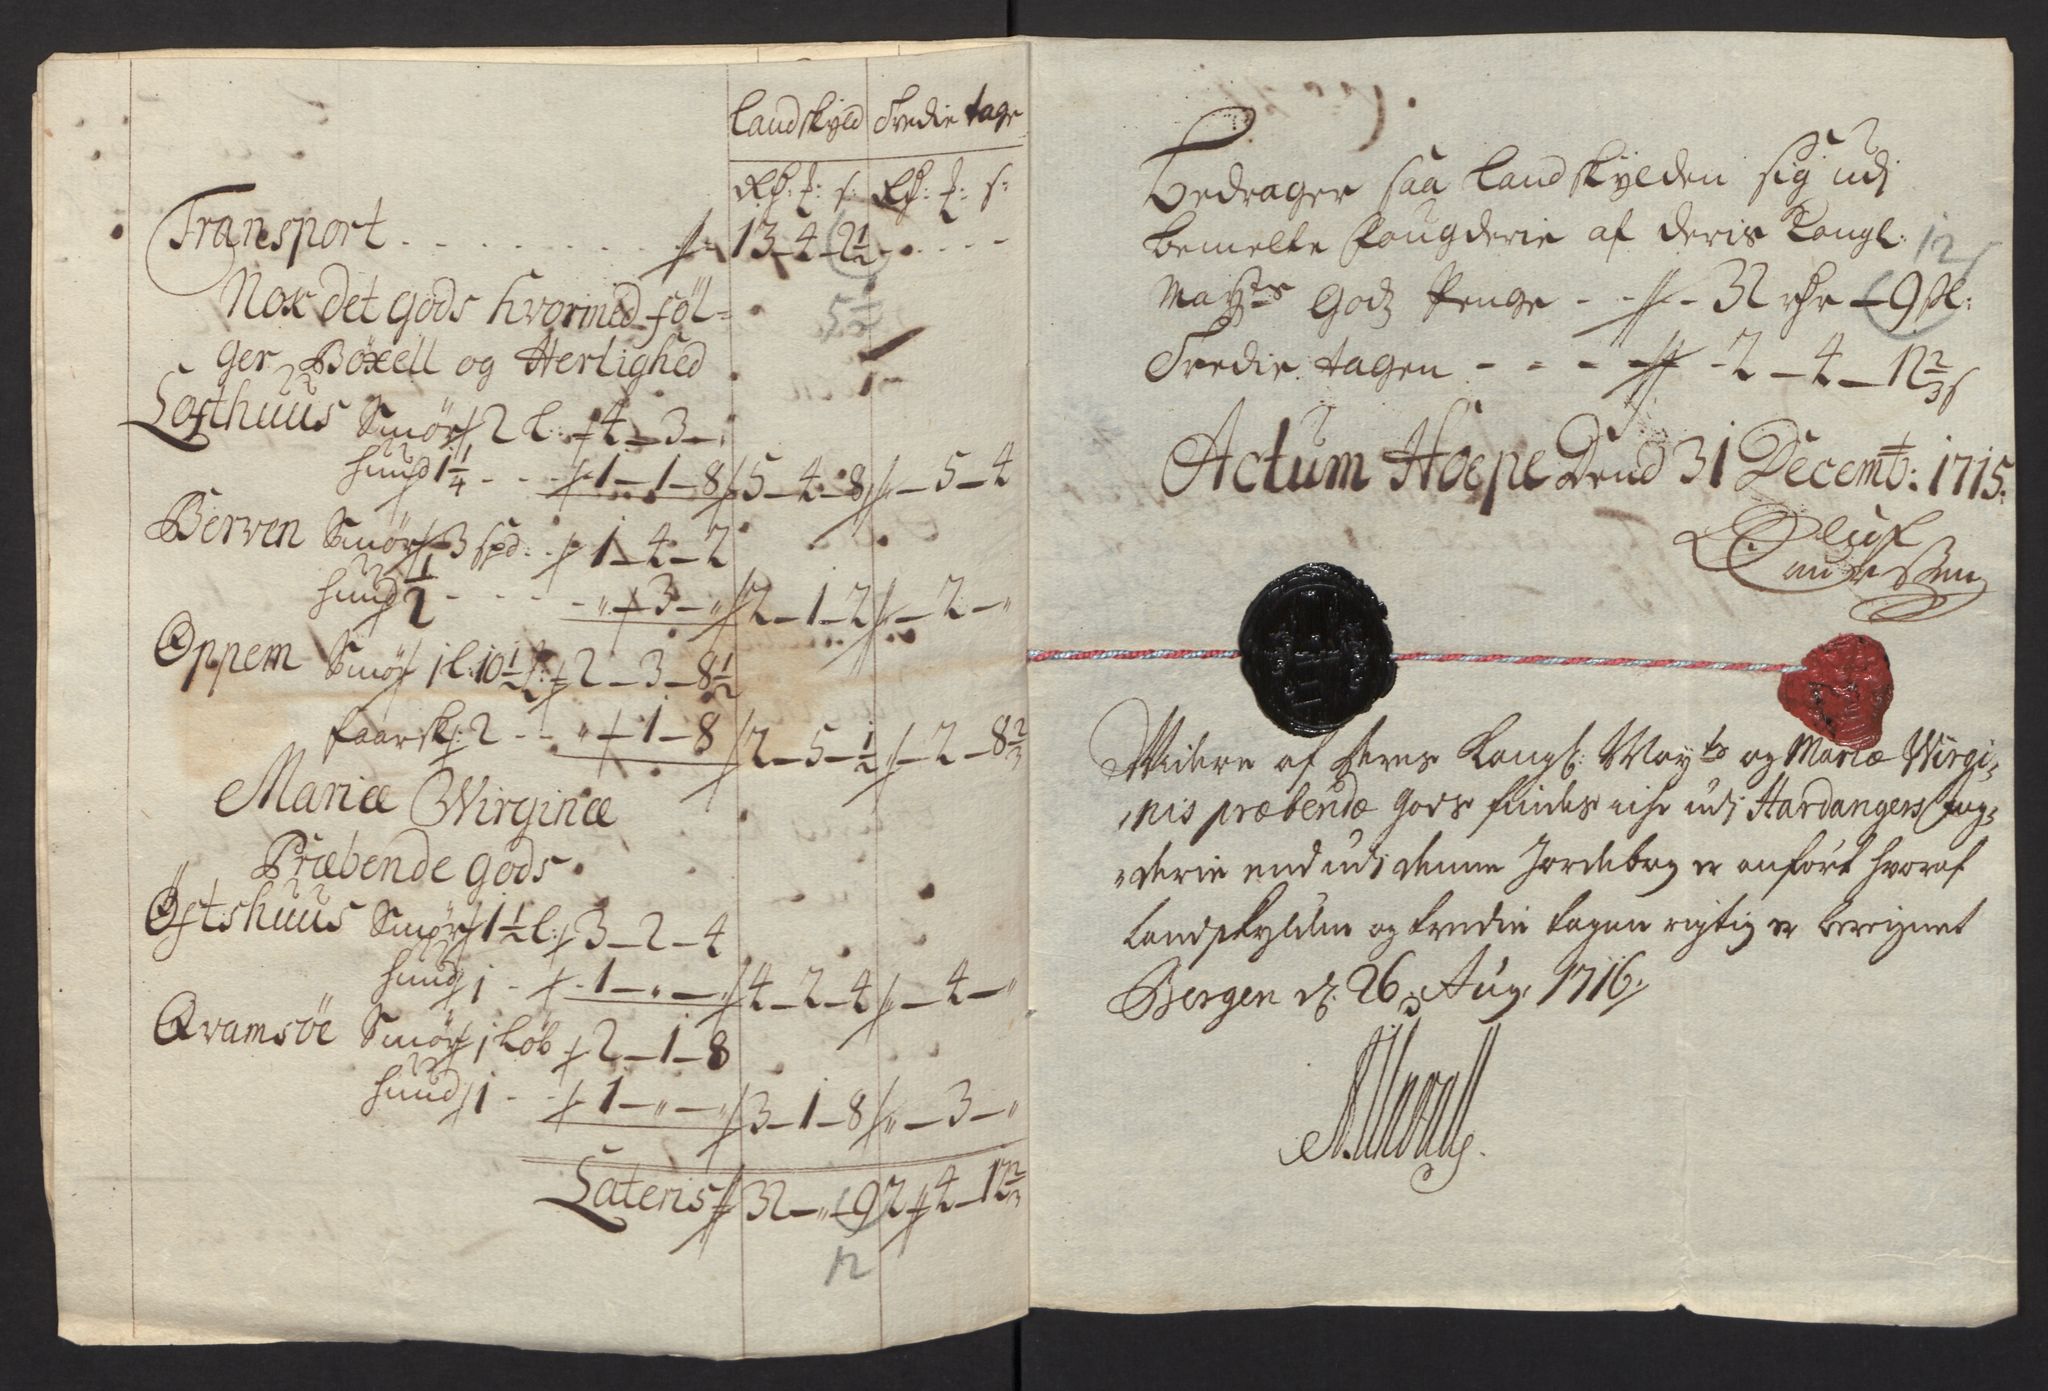 Landskyld Tredie tage
Rd: ƺ: s: Rd: ƺ: s:
Transport - - - - - - - 13 - 4 - 2½ - - - -
Nok det gods hvormed föl= 5½
ger Böxell og Herlighed
Lofthuus Smör 2 l: 4 - 3 -
huud 1¼ - - - 1 - 1 - 8 5 - 4 - 8 - 5 - 4
Berven Smör 3 spd: - 1 - 4 - 2
huud ½ - - - - " - 3 - " 2 - 1 - 2 - 2 - "
Oppem Smör 1 l: 10½ 2 - 3 - 8½
faarsk: 2 - - " - 1 - 8 2 - 5 - ½ - 2 - 8⅔
Mariæ Wirginæ
Præbende gods
Östshuus Smör 1½ l: 3 - 2 - 4
huud 1 - 1 - " - " 4 - 2 - 4 " - 4 - "
Qvamsöe Smör 1 Löb 2 - 1 - 8
huud 1 - - 1 - " - " 3 - 1 - 8 " - 3 - "
Lateris 32 - " - 9 2 - 4 - 12⅔
12
Bedrager saa Landskylden sig udj
bemelte fougderie af deris Kongl: 12
Mayts Godz Penge - - 32 rdr - 9 sk:
Tredie tagen - - - - 2 - 4 - 12⅔ s
Actum Hoepe Dend 31 Decemb: 1715.
Oluf
Andersen
Widere af deres Kongl: Mayts og Mariæ Wirgi=
nis præbende Gods findes iche udj Hardangers fog=
derie end udj denne Jordebog er anfört hvoraf
Landskylden og tredie tagen rigtig er bereignet
Bergen d. 26 Aug. 1716.